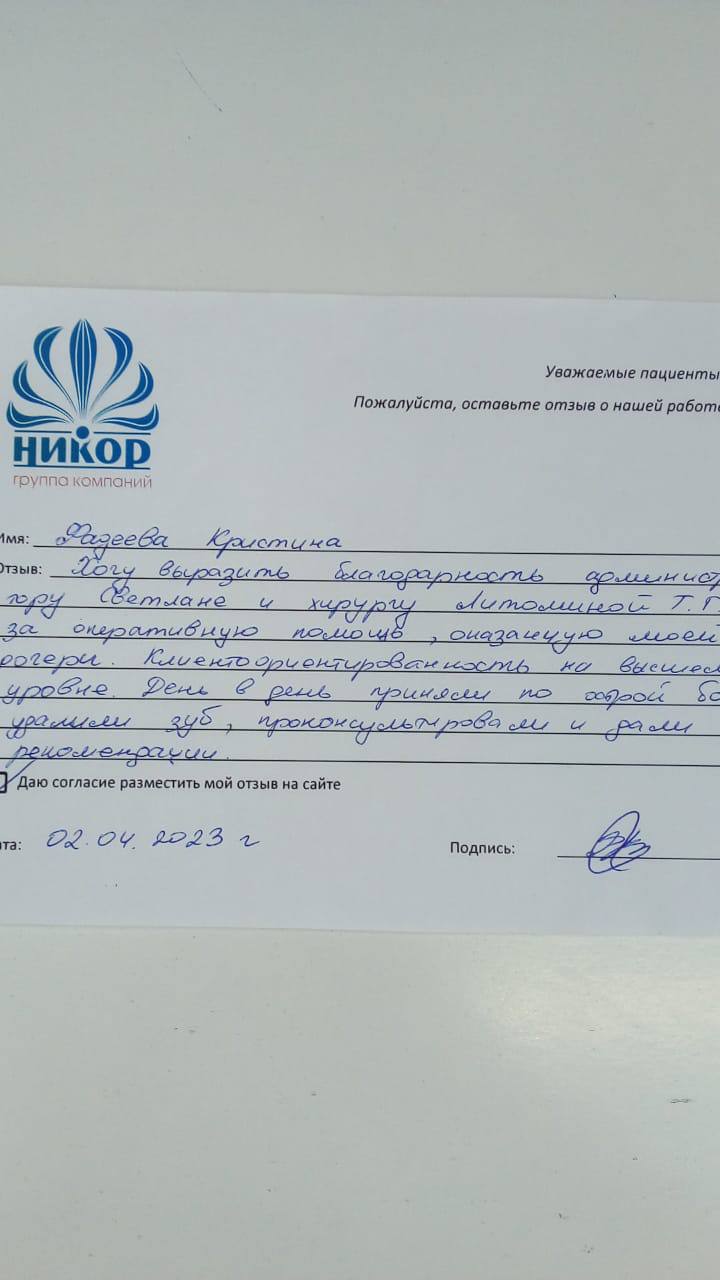 НИКОР
группа компаний
Уважаемые пациенты
Пожалуйста, оставьте отзыв о нашей работе
Имя: Фадеева Кристина
Отзыв: Хочу выразить благодарность админист
тору Светлане и хирургу Литоминой Т.Г
за оперативную помощь, оказанную моей
дочери. Клиентоориентированность на высшем
уровне. День в день приняли по острой бо
удалили зуб, проконсультировали и дали
рекомендации.
Даю согласие разместить мой отзыв на сайте
ата: 02.04.2023 г
Подпись: